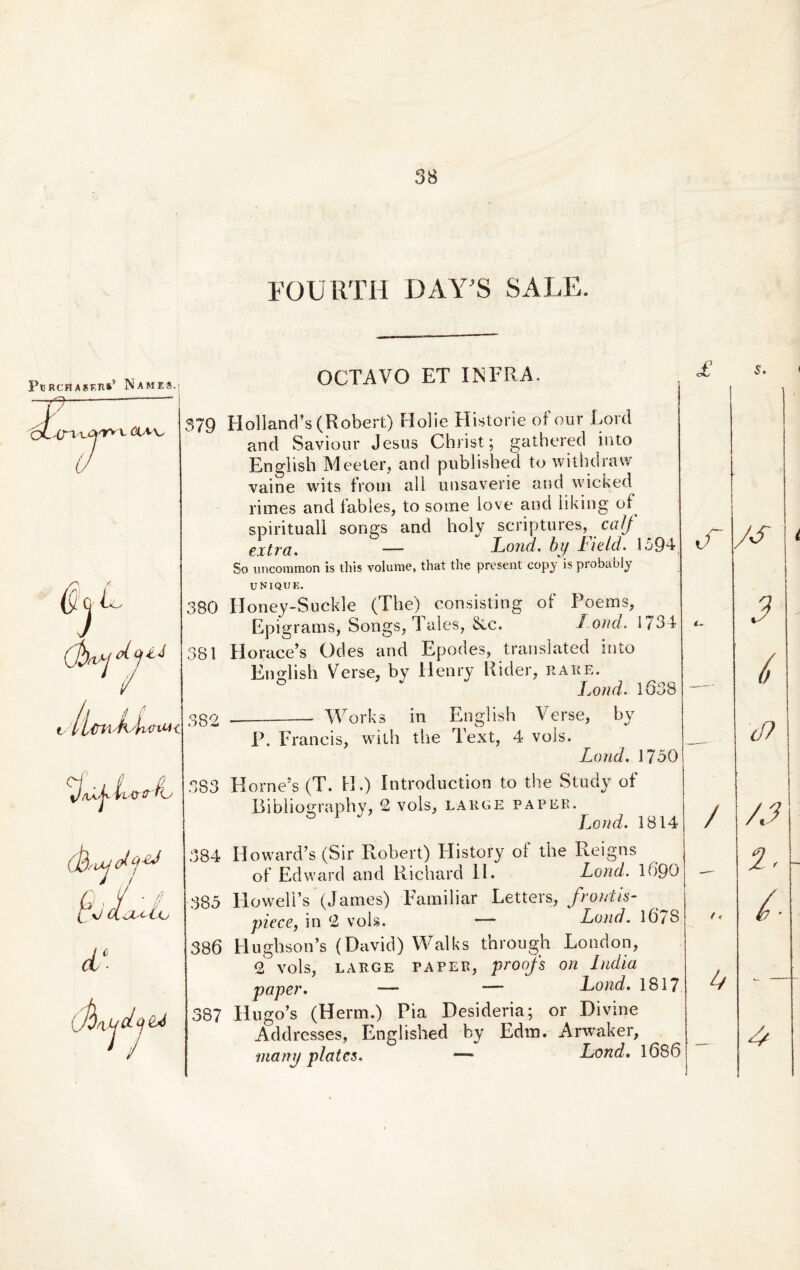 38
FOURTH DAY'S SALE.
PURCHASERS' NAMES.
OCTAVO ET INFRA.
£ s.
379 Holland's (Robert) Holie Historie of our Lord
and Saviour Jesus Christ; gathered into
English Meeter, and published to withdraw
vaine wits from all unsaverie and wicked
rimes and fables, to some love and liking of
spirituall songs and holy scriptures, calf
extra. — Lond. by Field. 1594
5 15
So uncommon is this volume, that the present copy is probably
UNIQUE.
380 Honey-Suckle (The) consisting of Poems,
Epigrams, Songs, Tales, &c. Lond. 1734
3
Bridges
381 Horace's Odes and Epodes, translated into
English Verse, by Henry Rider, RARE.
Lond. 1638
6
382 ——— Works in English Verse, by
P. Francis, with the Text, 4 vols.
Lond. 1750
383 Horne's (T. H.) Introduction to the Study of
Bibliography, 2 vols, LARGE PAPER.
Lond. 1814
1 13
Bridges
384 Howard's (Sir Robert) History of the Reigns
of Edward and Richard II. Lond. 1690
2
385 Howell's (James) Familiar Letters, frontis-
piece, in 2 vols. — Lond. 1678
6
do.
386 Hughson's (David) Walks through London,
2 vols, LARGE PAPER, proofs on India
paper. — — Lond. 1817
4
Bridges
387 Hugo's (Herm.) Pia Desideria; or Divine
Addresses, Englished by Edm. Arwaker,
many plates. — Lond. 1686
4